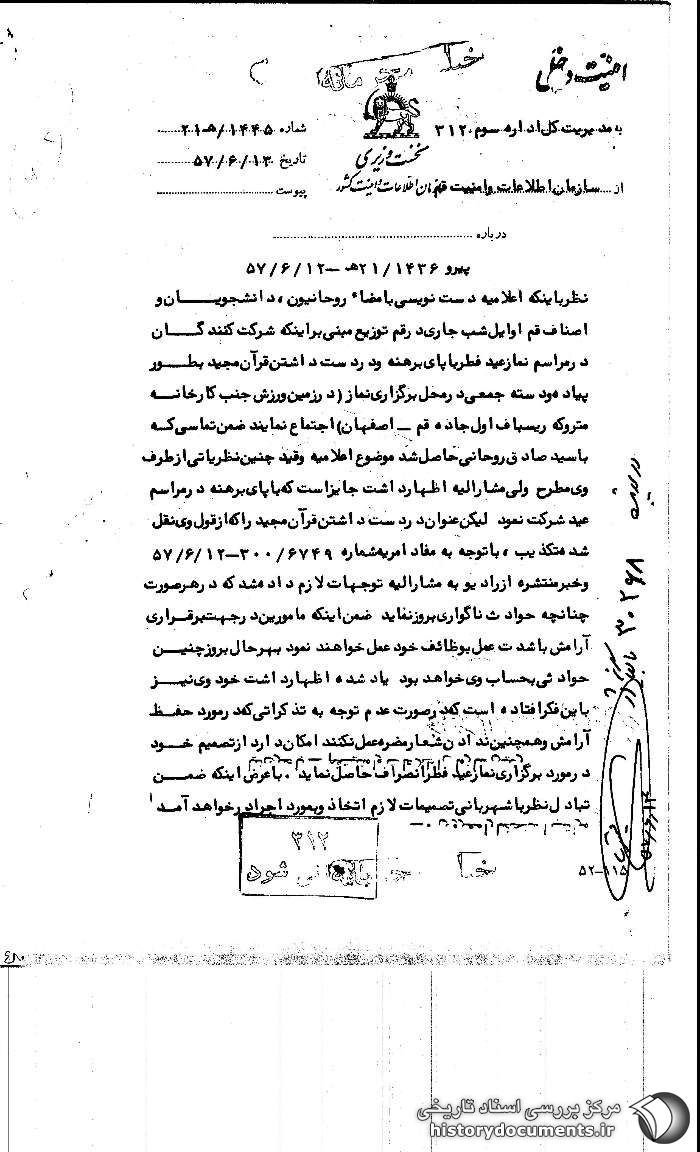 امنیت داخلی
خیلی محرمانه
به مدیریت کل اداره سوم ۳۱۲
شماره ۲۱/۱۴۴۵هـ
نخست وزیری
تاریخ ۵۷/۶/۱۳
از سازمان اطلاعات وامنیت قم
سازمان اطلاعات و امنیت کشور
پیوست
درباره
پیرو ۲۱/۱۴۳۶هـ -۵۷/۶/۱۲
نظرباینکه اعلامیه دست نویسی بامضاء روحانیون ، دانشجویـــان و
اصناف قم اوایل شب جاری درقم توزیع مبنی براینکه شرکت کنند گـــان
درمراسم نمازعید فطرباپای برهنه ودردست داشتن قرآن مجید بطــور
پیاده ودسته جمعی درمحل برگزاری نماز (درزمین ورزش جنب کارخانـه
متروکه ریسباف اول جاده قم ــ اصفهان) اجتماع نمایند ضمن تماسی که
باسید صادق روحانی حاصل شد موضوع اعلامیه وقید چنین نظریاتی ازطرف
وی مطرح ولی مشارالیه اظهارداشت جایزاست که باپای برهنه درمراسم
عید شرکت نمود لیکن عنوان دردست داشتن قرآن مجید راکه ازقول وی نقل
شد متکذیب ، باتوجه به مفاد امریه شماره ۳۰۰/۶۷۴۹-۵۷/۶/۱۲
وخبرمنتشره ازرادیو به مشارالیه توجهات لازم داده شد که درهرصورت
چنانچه حوادث ناگواری بروزنماید ضمن اینکه مامورین درجهت برقراری
آرامش باشدت عمل بوظائف خود عمل خواهند نمود بهرحال بروزچنیــن
حوادثی بحساب وی خواهد بود یاد شده اظهارداشت خود وی نیــز
باین فکرافتاده است که درصورت عدم توجه به تذکراتی که درمورد حفظ
آرامش وهمچنین ندادن شعارمضره عمل نکنند امکان دارد ازتصمیم خــود
درمورد برگزاری نمازعید فطرانصراف حاصل نماید . باعرض اینکه ضمــن
تبادل نظرباشهربانی تصمیمات لازم اتخاذ وبمورد اجرادرخواهد آمد
۳۱۲
بایگانی شود
خیلی
۵۲-۱۱۵
۳۰۲۶۸
۴۸۰
مرکز بررسی اسناد تاریخی
historydocuments.ir